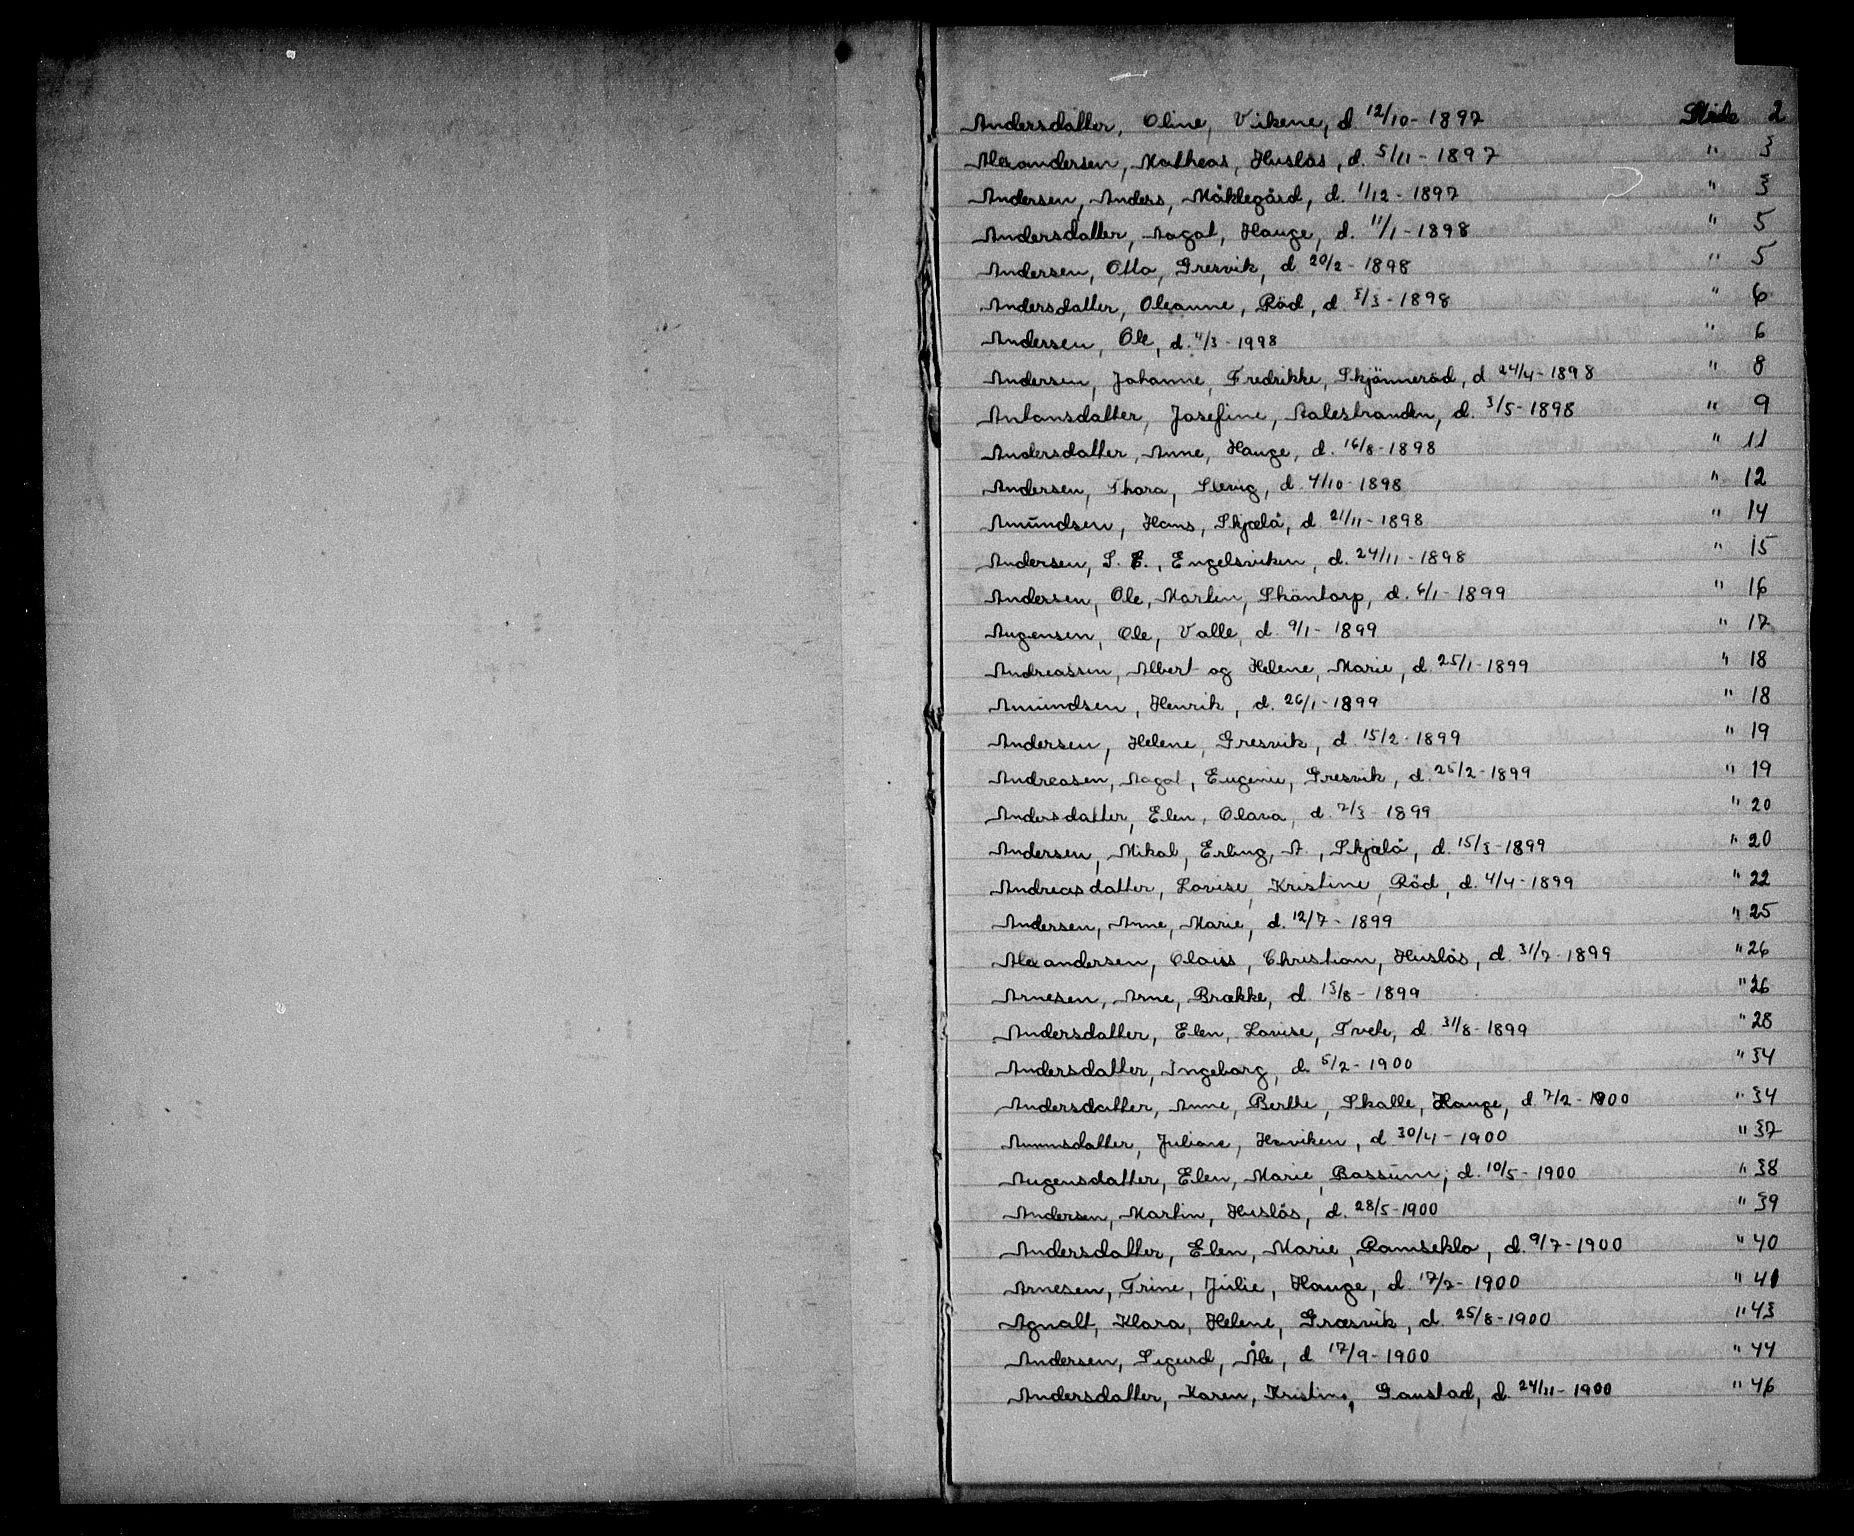 Andersdatter, Oline, Vikene, d 12/10-1897 Side 2
Alexandersen, Matheas, Huslös, d. 5/11-1897 " 3
Andersen, Anders, Måklegård, d. 1/12-1897 " 3
Andersdatter, Aagot, Hauge, d. 11/1-1898 " 5
Andersen, Otto, Gresvik, d 20/2-1898 " 5
Andersdatter, Oleanne, Röd, d 3/3-1898 " 6
Andersen, Ole, d. 4/3-1998 " 6
Andersen, Johanne, Fredrikke, Skjönneröd, d 24/4-1898 " 8
Antonsdatter, Josefine, Aalestranden, d. 3/5-1898 " 9
Andersdatter, Anne, Hauge, d. 16/8-1898 " 11
Andersen, Thora, Slevig, d. 4/10-1898 " 12
Amundsen, Hans, Skjælå, d 21/11-1898 " 14
Andersen, S. E., Engelsviken, d. 24/11-1898 " 15
Andersen, Ole, Martin, Sköntorp, d. 6/1-1899 " 16
Augensen, Ole, Valle, d. 9/1-1899 " 17
Andreassen, Albert og Helene, Marie, d 25/1-1899 " 18
Amundsen, Henrik, d. 26/1-1899 " 18
Andersen, Helene, Gresvik, d 15/2-1899 " 19
Andreasen, Aagot, Eugenie, Gresvik, d. 25/2-1899 " 19
Andersdatter, Elen, Olava, d. 7/3-1899 " 20
Andersen, Mikal, Erling, A., Skjælå, d. 15/3-1899 " 20
Andreasdatter, Lovise, Kristine, Röd, d. 4/4-1899 " 22
Andersen, Anne, Marie, d. 12/7-1899 " 25
Alexandersen, Olaiss, Christian, Huslös, d 31/7-1899 " 26
Arnesen, Arne, Brække, d 15/8-1899 " 26
Andersdatter, Elen, Lovise, Tvete, d 31/8-1899 " 28
Andersdatter, Ingeborg, d. 5/2-1900 " 34
Andersdatter, Anne, Berthe, Skalle, Hauge, d 7/2-1900 " 34
Juliane, Haviken, d 30/4-1900 " 37
Augensdatter, Elen, Marie, Bossum, d. 10/5-1900 " 38
Andersen, Martin, Huslös, d. 28/5-1900 " 39
Andersdatter, Elen, Marie, Ramsekla, d. 9/7-1900 " 40
Arnesen, Trine, Julie, Hauge, d. 17/7-1900 " 41
Agnalt, Klara, Helene, Græsvik, d. 25/8-1900 " 43
Andersen, Sigurd, Åle, d 17/9-1900 " 44
Andersdatter, Karen, Kristine, Gaustad, d. 24/11-1900 " 46